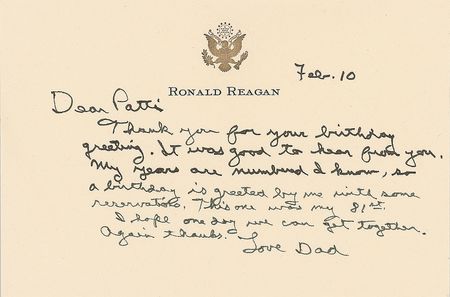 Feb. 10
RONALD REAGAN
Dear Patti
Thank you for your birthday
greeting. It was good to hear from you.
My years are numbered I know, so
a birthday is greeted by me with some
reservation. This one was my 81st.
I hope one day we can get together.
Again thanks.
Love Dad